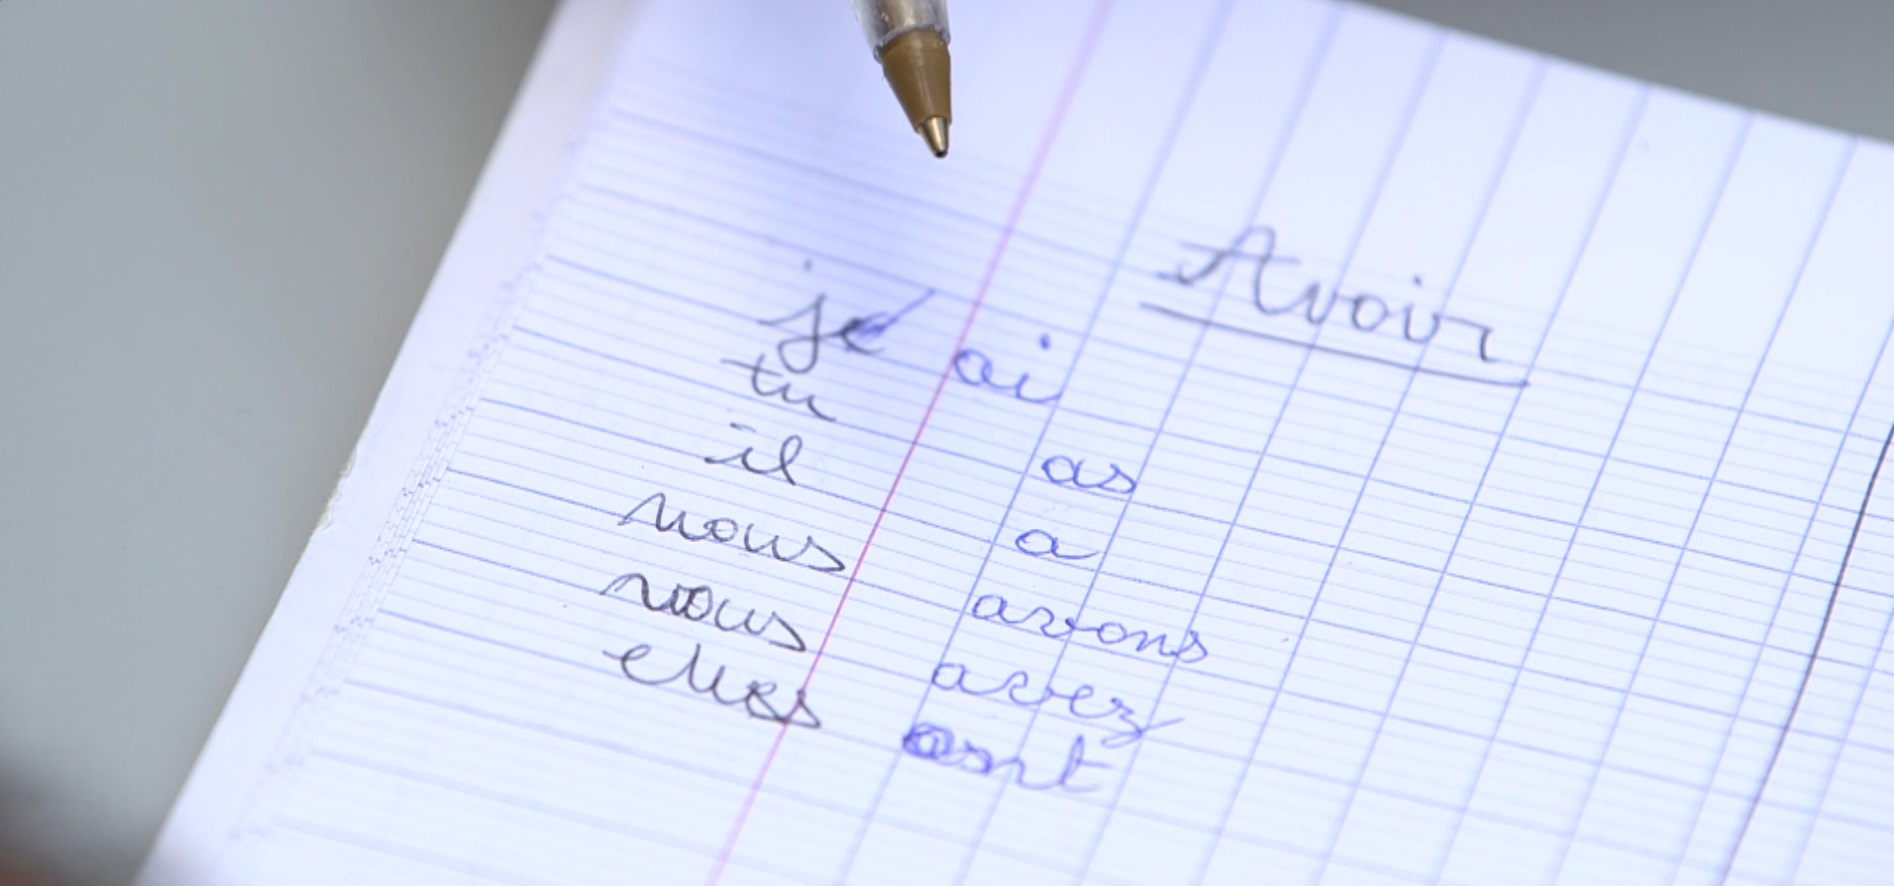 Avoir
j' ai
tu as
il a
nous avons
vous avez
elles ont